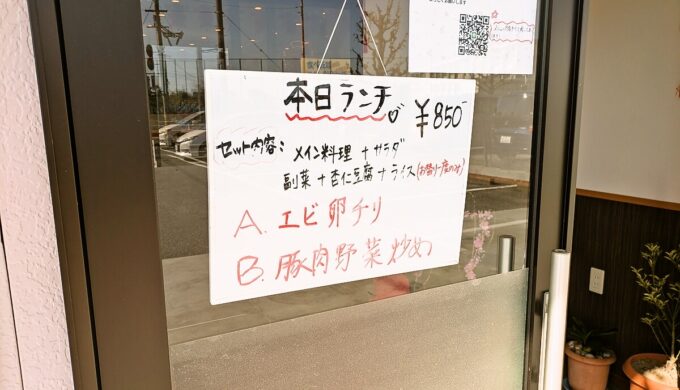 本日ランチ♡ ¥850-
セット内容: メイン料理 + サラダ
副菜 + 杏仁豆腐 + ライス(お替り一度のみ)
A. エビ卵チリ
B. 豚肉野菜炒め